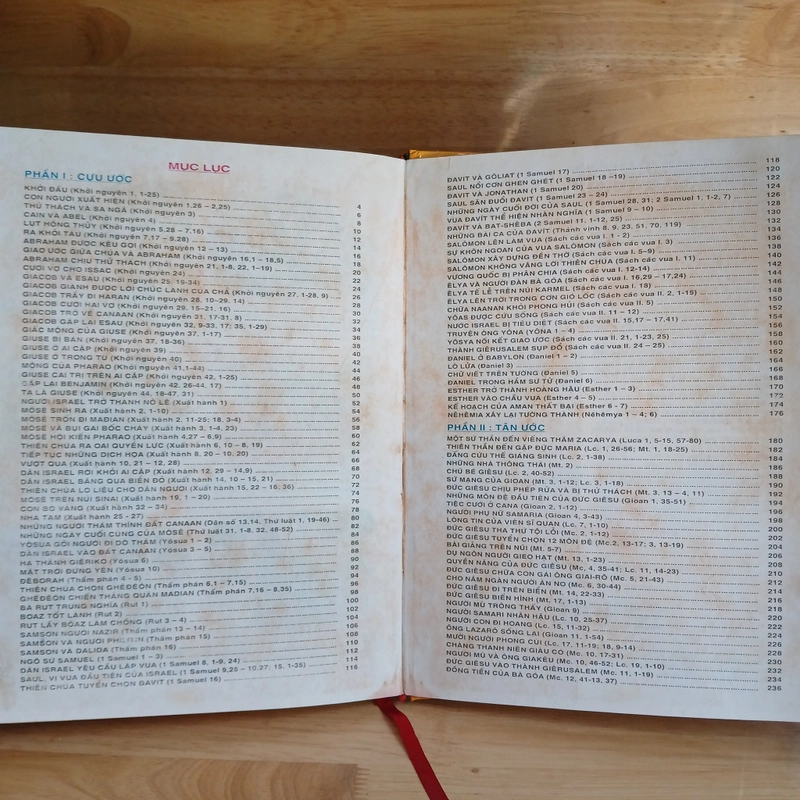 MỤC LỤC
PHẦN I : CỰU ƯỚC
KHỞI ĐẦU (Khởi nguyên 1, 1-25)
CON NGƯỜI XUẤT HIỆN (Khởi nguyên 1,26 – 2,25) 4
THỬ THÁCH VÀ SA NGÃ (Khởi nguyên 3) 6
CAIN VÀ ABEL (Khởi nguyên 4) 8
LỤT HỒNG THỦY (Khởi nguyên 5,28 – 7,16) 10
RA KHỎI TÀU (Khởi nguyên 7,17 – 9,28) 12
ABRAHAM ĐƯỢC KÊU GỌI (Khởi nguyên 12 – 13) 14
GIAO ƯỚC GIỮA CHÚA VÀ ABRAHAM (Khởi nguyên 16,1 – 18,5) 16
ABRAHAM CHỊU THỬ THÁCH (Khởi nguyên 21, 1-8. 22, 1–19) 18
CƯỚI VỢ CHO ISSAC (Khởi nguyên 24) 20
GIACOB VÀ ESAU (Khởi nguyên 25, 19-34) 22
GIACOB GIÀNH ĐƯỢC LỜI CHÚC LÀNH CỦA CHA (Khởi nguyên 27, 1-28, 9) 24
GIACOB THẤY ĐI HARAN (Khởi nguyên 28, 10–29, 14) 26
GIACOB CƯỚI HAI VỢ (Khởi nguyên 29, 15–21, 16) 28
GIACOB TRỞ VỀ CANAAN (Khởi nguyên 31, 17-31, 8) 30
GIACOB GẶP LẠI ESAU (Khởi nguyên 32, 9-33, 17; 35, 1-29) 32
GIẤC MỘNG CỦA GIUSE (Khởi nguyên 37, 1-17) 34
GIUSE BỊ BÁN (Khởi nguyên 37, 18-36) 36
GIUSE Ở AI CẬP (Khởi nguyên 39) 38
GIUSE Ở TRONG TÙ (Khởi nguyên 40) 40
MỘNG CỦA PHARAO (Khởi nguyên 41,1-44) 42
GIUSE CAI TRỊ TRÊN AI CẬP (Khởi nguyên 42, 1-25) 44
GẶP LẠI BENJAMIN (Khởi nguyên 42, 26-44, 17) 46
TA LÀ GIUSE (Khởi nguyên 44, 18-47, 31) 48
NGƯỜI ISRAEL TRỞ THÀNH NÔ LỆ (Xuất hành 1) 50
MÔSÊ SINH RA (Xuất hành 2, 1-10) 52
MÔSÊ TRỐN ĐI MADIAN (Xuất hành 2, 11-25; 18, 3-4) 54
MÔSÊ VÀ BỤI GAI BỐC CHÁY (Xuất hành 3, 1-4,23) 56
MÔSÊ HỘI KIẾN PHARAO (Xuất hành 4,27 – 6,9) 58
THIÊN CHÚA RA OAI QUYỀN LỰC (Xuất hành 6, 10 – 8, 19) 60
TIẾP TỤC NHỮNG DỊCH HỌA (Xuất hành 8, 20 – 10, 20) 62
VƯỢT QUA (Xuất hành 10, 21 – 12, 28) 64
DÂN ISRAEL RỜI KHỎI AI CẬP (Xuất hành 12, 29 – 14,9) 66
DÂN ISRAEL BĂNG QUA BIỂN ĐỎ (Xuất hành 14, 10 – 15, 21) 68
THIÊN CHÚA LO LIỆU CHO DÂN NGƯỜI (Xuất hành 15, 22 – 16, 36) 70
MÔSÊ TRÊN NÚI SINAI (Xuất hành 19, 1 – 20) 72
CON BÒ VÀNG (Xuất hành 32 – 34) 74
NHÀ TẠM (Xuất hành 25 - 27) 76
NHỮNG NGƯỜI THÁM THÍNH ĐẤT CANAAN (Dân số 13.14, Thứ luật 1, 19-46) 78
NHỮNG NGÀY CUỐI CÙNG CỦA MÔSÊ (Thứ luật 31, 1-8. 32, 48-52) 80
YÔSUA GỞI NGƯỜI ĐI DÒ THÁM (Yôsua 1 – 2) 82
DÂN ISRAEL VÀO ĐẤT CANAAN (Yôsua 3 – 5) 84
HẠ THÀNH GIÊRIKÔ (Yôsua 6) 86
MẶT TRỜI ĐỨNG YÊN (Yôsua 10) 88
ĐÊBORAH (Thẩm phán 4 - 5) 90
THIÊN CHÚA CHỌN GHÊĐÊÔN (Thẩm phán 6,1 – 7,15) 92
GHÊĐÊÔN CHIẾN THẮNG QUÂN MADIAN (Thẩm phán 7,16 – 8,35) 94
BÀ RUT TRUNG NGHĨA (Rut 1) 98
BOAZ TỐT LÀNH (Rut 2) 100
RUT LẤY BÔAZ LÀM CHỒNG (Rut 3 – 4) 102
SAMSON NGƯỜI NAZIR (Thẩm phán 13 – 14) 104
SAMSON VÀ NGƯỜI (Thẩm phán 15) 106
SAMSON VÀ DALIDA (Thẩm phán 16) 108
NGÔ SỨ SAMUEL (1 Samuel 1 – 3) 110
DÂN ISRAEL YÊU CẦU LẬP VUA (1 Samuel 8, 1-9, 24) 112
SAUL, VỊ VUA ĐẦU TIÊN CỦA ISRAEL (1 Samuel 9,25 – 10,27; 15, 1-35) 114
THIÊN CHÚA TUYỂN CHỌN ĐAVIT (1 Samuel 16) 116
ĐAVIT VÀ GÔLIAT (1 Samuel 17) 118
SAUL NỔI CƠN GHEN GHÉT (1 Samuel 18 –19) 120
ĐAVIT VÀ JONATHAN (1 Samuel 20) 122
SAUL SĂN ĐUỔI ĐAVIT (1 Samuel 23 – 24) 124
NHỮNG NGÀY CUỐI ĐỜI CỦA SAUL (1 Samuel 28, 31; 2 Samuel 1, 1-2, 7) 126
VUA ĐAVIT THỂ HIỆN NHÂN NGHĨA (1 Samuel 9 – 10) 128
ĐAVIT VÀ BAT-SHÊBA (2 Samuel 11, 1-12, 25) 130
NHỮNG BÀI CA CỦA ĐAVIT (Thánh vịnh 8, 9, 23, 51, 70, 119) 132
SALÔMON LÊN LÀM VUA (Sách các vua I. 1 - 2) 134
SỰ KHÔN NGOAN CỦA VUA SALÔMON (Sách các vua I. 3) 136
SALÔMON XÂY DỰNG ĐỀN THỜ (Sách các vua I. 5–9) 138
SALÔMON KHÔNG VÂNG LỜI THIÊN CHÚA (Sách các vua I. 11) 140
VƯƠNG QUỐC BỊ PHÂN CHIA (Sách các vua I. 12-14) 142
ÊLYA VÀ NGƯỜI ĐÀN BÀ GÓA (Sách các vua I. 16,29 – 17,24) 144
ÊLYA TẾ LỄ TRÊN NÚI KARMEL (Sách các vua I. 18) 146
ÊLYA LÊN TRỜI TRONG CƠN GIÓ LỐC (Sách các vua II. 2, 1-15) 148
CHỮA NAANAN KHỎI PHONG HỦI (Sách các vua II. 5) 150
YÔAS ĐƯỢC CỨU SỐNG (Sách các vua II. 11 – 12) 152
NƯỚC ISRAEL BỊ TIÊU DIỆT (Sách các vua II. 15,17 – 17,41) 154
TRUYỆN ÔNG YÔNA (YÔNA 1 – 4) 156
YÔSYA NỐI KẾT GIAO ƯỚC (Sách các vua II. 21, 1-23, 25) 158
THÀNH GIÊRUSALEM SỤP ĐỔ (Sách các vua II. 24 – 25) 160
ĐANIEL Ở BABYLON (Daniel 1 – 2) 162
LÒ LỬA (Daniel 3) 164
CHỮ VIẾT TRÊN TƯỜNG (Daniel 5) 166
DANIEL TRONG HẦM SƯ TỬ (Daniel 6) 168
ESTHER TRỞ THÀNH HOÀNG HẬU (Esther 1 – 3) 170
ESTHER VÀO CHẦU VUA (Esther 4 – 5) 172
KẾ HOẠCH CỦA AMAN THẤT BẠI (Esther 6 - 7) 174
NÊHÊMIA XÂY LẠI TƯỜNG THÀNH (Nêhêmya 1 – 4; 6) 176
PHẦN II : TÂN ƯỚC
MỘT SỨ THẦN ĐẾN VIẾNG THĂM ZACARYA (Luca 1, 5-15, 57-80) 180
THIÊN THẦN ĐẾN GẶP ĐỨC MARIA (Lc. 1, 26-56; Mt. 1, 18-25) 182
ĐẤNG CỨU THẾ GIÁNG SINH (Lc. 2, 1-38) 184
NHỮNG NHÀ THÔNG THÁI (Mt. 2) 186
CHÚ BÉ GIÊSU (Lc. 2, 40-52) 188
SỨ MẠNG CỦA GIOAN (Mt. 3, 1-12; Lc. 3, 1-18) 190
ĐỨC GIÊSU CHỊU PHÉP RỬA VÀ BỊ THỬ THÁCH (Mt. 3, 13 – 4, 11) 192
NHỮNG MÔN ĐỆ ĐẦU TIÊN CỦA ĐỨC GIÊSU (Gioan 1, 35-51) 194
TIỆC CƯỚI Ở CANA (Gioan 2, 1-12) 196
NGƯỜI PHỤ NỮ SAMARIA (Gioan 4, 3-43) 198
LÒNG TIN CỦA VIÊN SĨ QUAN (Lc. 7, 1-10) 200
ĐỨC GIÊSU THA THỨ TỘI LỖI (Mc. 2, 1-12) 202
ĐỨC GIÊSU TUYỂN CHỌN 12 MÔN ĐỆ (Mc.2, 13-17; 3, 13-19) 204
BÀI GIẢNG TRÊN NÚI (Mt. 5-7) 206
DỤ NGÔN NGƯỜI GIEO HẠT (Mt. 13, 1-23) 208
QUYỀN NĂNG CỦA ĐỨC GIÊSU (Mc, 4, 35-41; Lc. 11, 14-23) 210
ĐỨC GIÊSU CHỮA CON GÁI ÔNG GIAI-RÔ (Mc. 5, 21-43) 212
CHO NĂM NGÀN NGƯỜI ĂN NO (Mc. 6, 30-44) 214
ĐỨC GIÊSU ĐI TRÊN BIỂN (Mt. 14, 22-33) 216
ĐỨC GIÊSU BIẾN HÌNH (Mt. 17, 1-13) 218
NGƯỜI MÙ TRÔNG THẤY (Gioan 9) 220
NGƯỜI SAMARI NHÂN HẬU (Lc. 10, 25-37) 222
NGƯỜI CON ĐI HOANG (Lc. 15, 11-32) 224
ÔNG LAZARÔ SỐNG LẠI (Gioan 11, 1-54) 226
MƯỜI NGƯỜI PHONG CÙI (Lc. 17, 11-19; 18, 9-14) 228
CHÀNG THANH NIÊN GIÀU CÓ (Mc. 10, 17-31) 230
NGƯỜI MÙ VÀ ÔNG GIAKÊU (Mc. 10, 46-52; Lc. 19, 1-10) 232
ĐỨC GIÊSU VÀO THÀNH GIÊRUSALEM (Mc. 11, 1-19) 234
ĐỒNG TIỀN CỦA BÀ GÓA (Mc. 12, 41-13, 37) 236